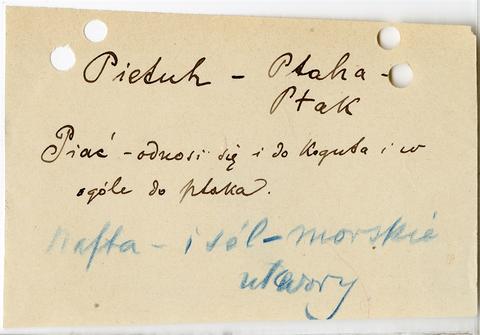 Pietuh - Ptaha -
Ptak
Piać - odnosi się i do koguta i w
ogóle do ptaka.
Nafta - i sól - morskie
utwory